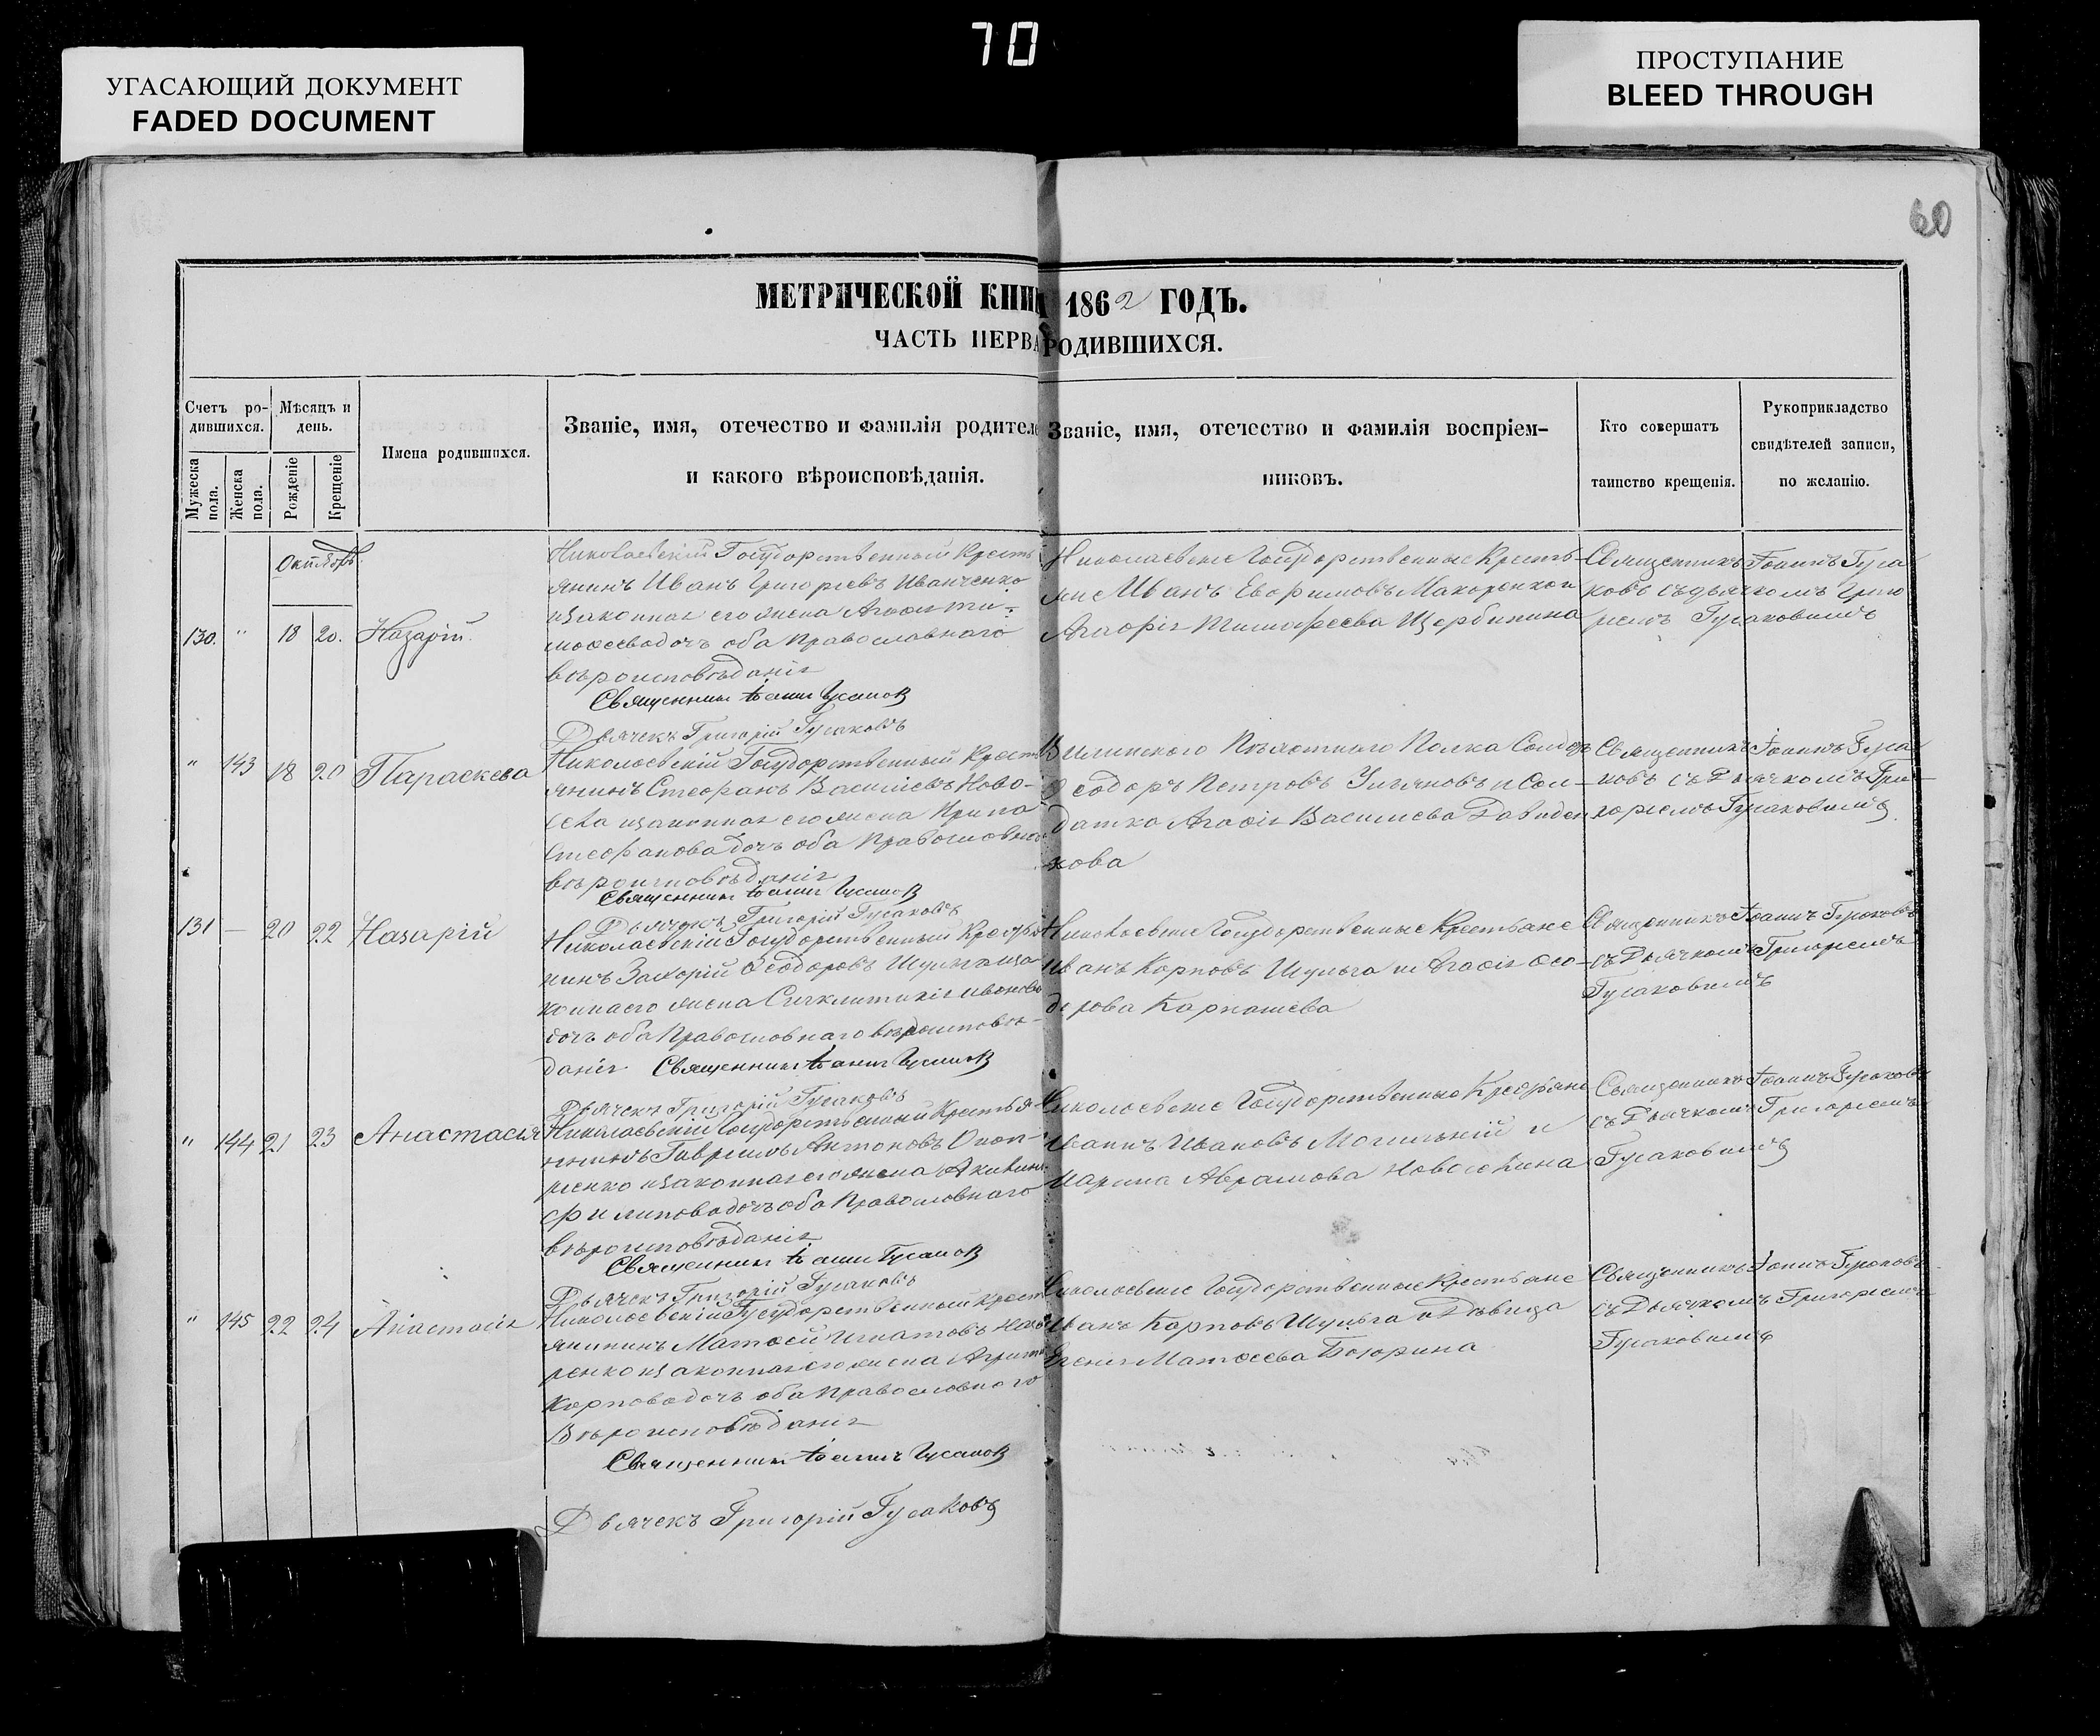 70
УГАСАЮЩИЙ ДОКУМЕНТ
FADED DOCUMENT
ПРОСТУПАНИЕ
BLEED THROUGH
60
МЕТРИЧЕСКОЙ КНИГИ 1862 ГОДЪ.
ЧАСТЬ ПЕРВА РОДИВШИХСЯ.
Счетъ ро-
дившихся.
Мужеска
пола.
Женска
пола.
Мѣсяцъ и
день.
Рожденіе
Крещеніе
Имена родившихся.
Званіе, имя, отечество и фамилія родителе
и какого вѣроисповѣданія.
Званіе, имя, отечество и фамилія воспріем-
никовъ.
Кто совершатъ
таинство крещенія.
Рукоприкладство
свидѣтелей записи,
по желанію.
Октябрь
130. " 18 20. Назарій
Николаевскій Государственный Кресть
янинъ Иванъ Григорьевъ Иванченко
изаконная его жена Агафья Ти-
мофеева дочь оба Православнаго
вѣроисповѣданія
Священникъ Іоаннъ Гусаков
Дьячекъ Григорій Гусаковъ
Николаевские Государственные Крестья
не Иванъ Евфимовъ Макаренко и
Агафія Тимофеева Щербинина
Священникъ Іоаннъ Гуса
ковъ съ дьячкомъ Григо
ріемъ Гусаковымъ
" 143 18 20 Параскева
Николаевскій Государственный Кресть
янинъ Стефанъ Васильевъ Ново-
сена изаконная его жена Ирина
Стефанова дочь оба Православнаго
вѣроисповѣданія
Священникъ Іоаннъ Гусаков
Дьячекъ Григорій Гусаковъ
Виленского Пехотнаго Полка Солдатъ
Феодоръ Петровъ Ульяновъ и Сол-
датка Агафія Васильева Давиден
кова
Священникъ Іоаннъ Гуса
ковъ съ Дьячкомъ Гри-
горіемъ Гусаковымъ
131 — 20 22 Назарій
Николаевскій Государственный Крестья
нинъ Захарій Феодоровъ Шульга иза
конная его жена Синклитикія Иванова
дочь оба Православнаго вѣроисповѣ-
данія Священникъ Іоаннъ Гусаков
Дьячекъ Григорій Гусаковъ
Николаевские Государственные Крестьяне
Иванъ Карповъ Шульга и Агафія Фео-
дорова Карпашева
Священникъ Іоаннъ Гусаковъ
съ Дьячкомъ Григоріемъ
Гусаковымъ
" 144 21 23 Анастасія
Николаевскій Государственный Крестья
нинъ Гавріилъ Антоновъ
изаконная его жена Акилина
Филипова дочь оба Православнаго
вѣроисповѣданія
Священникъ Іоаннъ Гусаков
Дьячекъ Григорій Гусаковъ
Николаевские Государственные Крестьяне
Иоаннъ Ивановъ Могильній и
Марина Абрамова Новосёкина
Священникъ Іоаннъ Гусаковъ
съ Дьячкомъ Григоріемъ
Гусаковымъ
" 145 22 24 Анастасія
Николаевскій Государственный Кресть
янинъ Матфей Игнатовъ Наза
ренко изаконная его жена
Карпова дочь оба Православнаго
Вѣроисповѣданія
Священникъ Іоаннъ Гусаков
Дьячекъ Григорій Гусаковъ
Николаевские Государственные Крестьяне
Иванъ Карповъ Шульга и Дѣвица
Матфеева Боюрина
Священникъ Іоаннъ Гусаковъ
съ Дьячкомъ Григоріемъ
Гусаковымъ